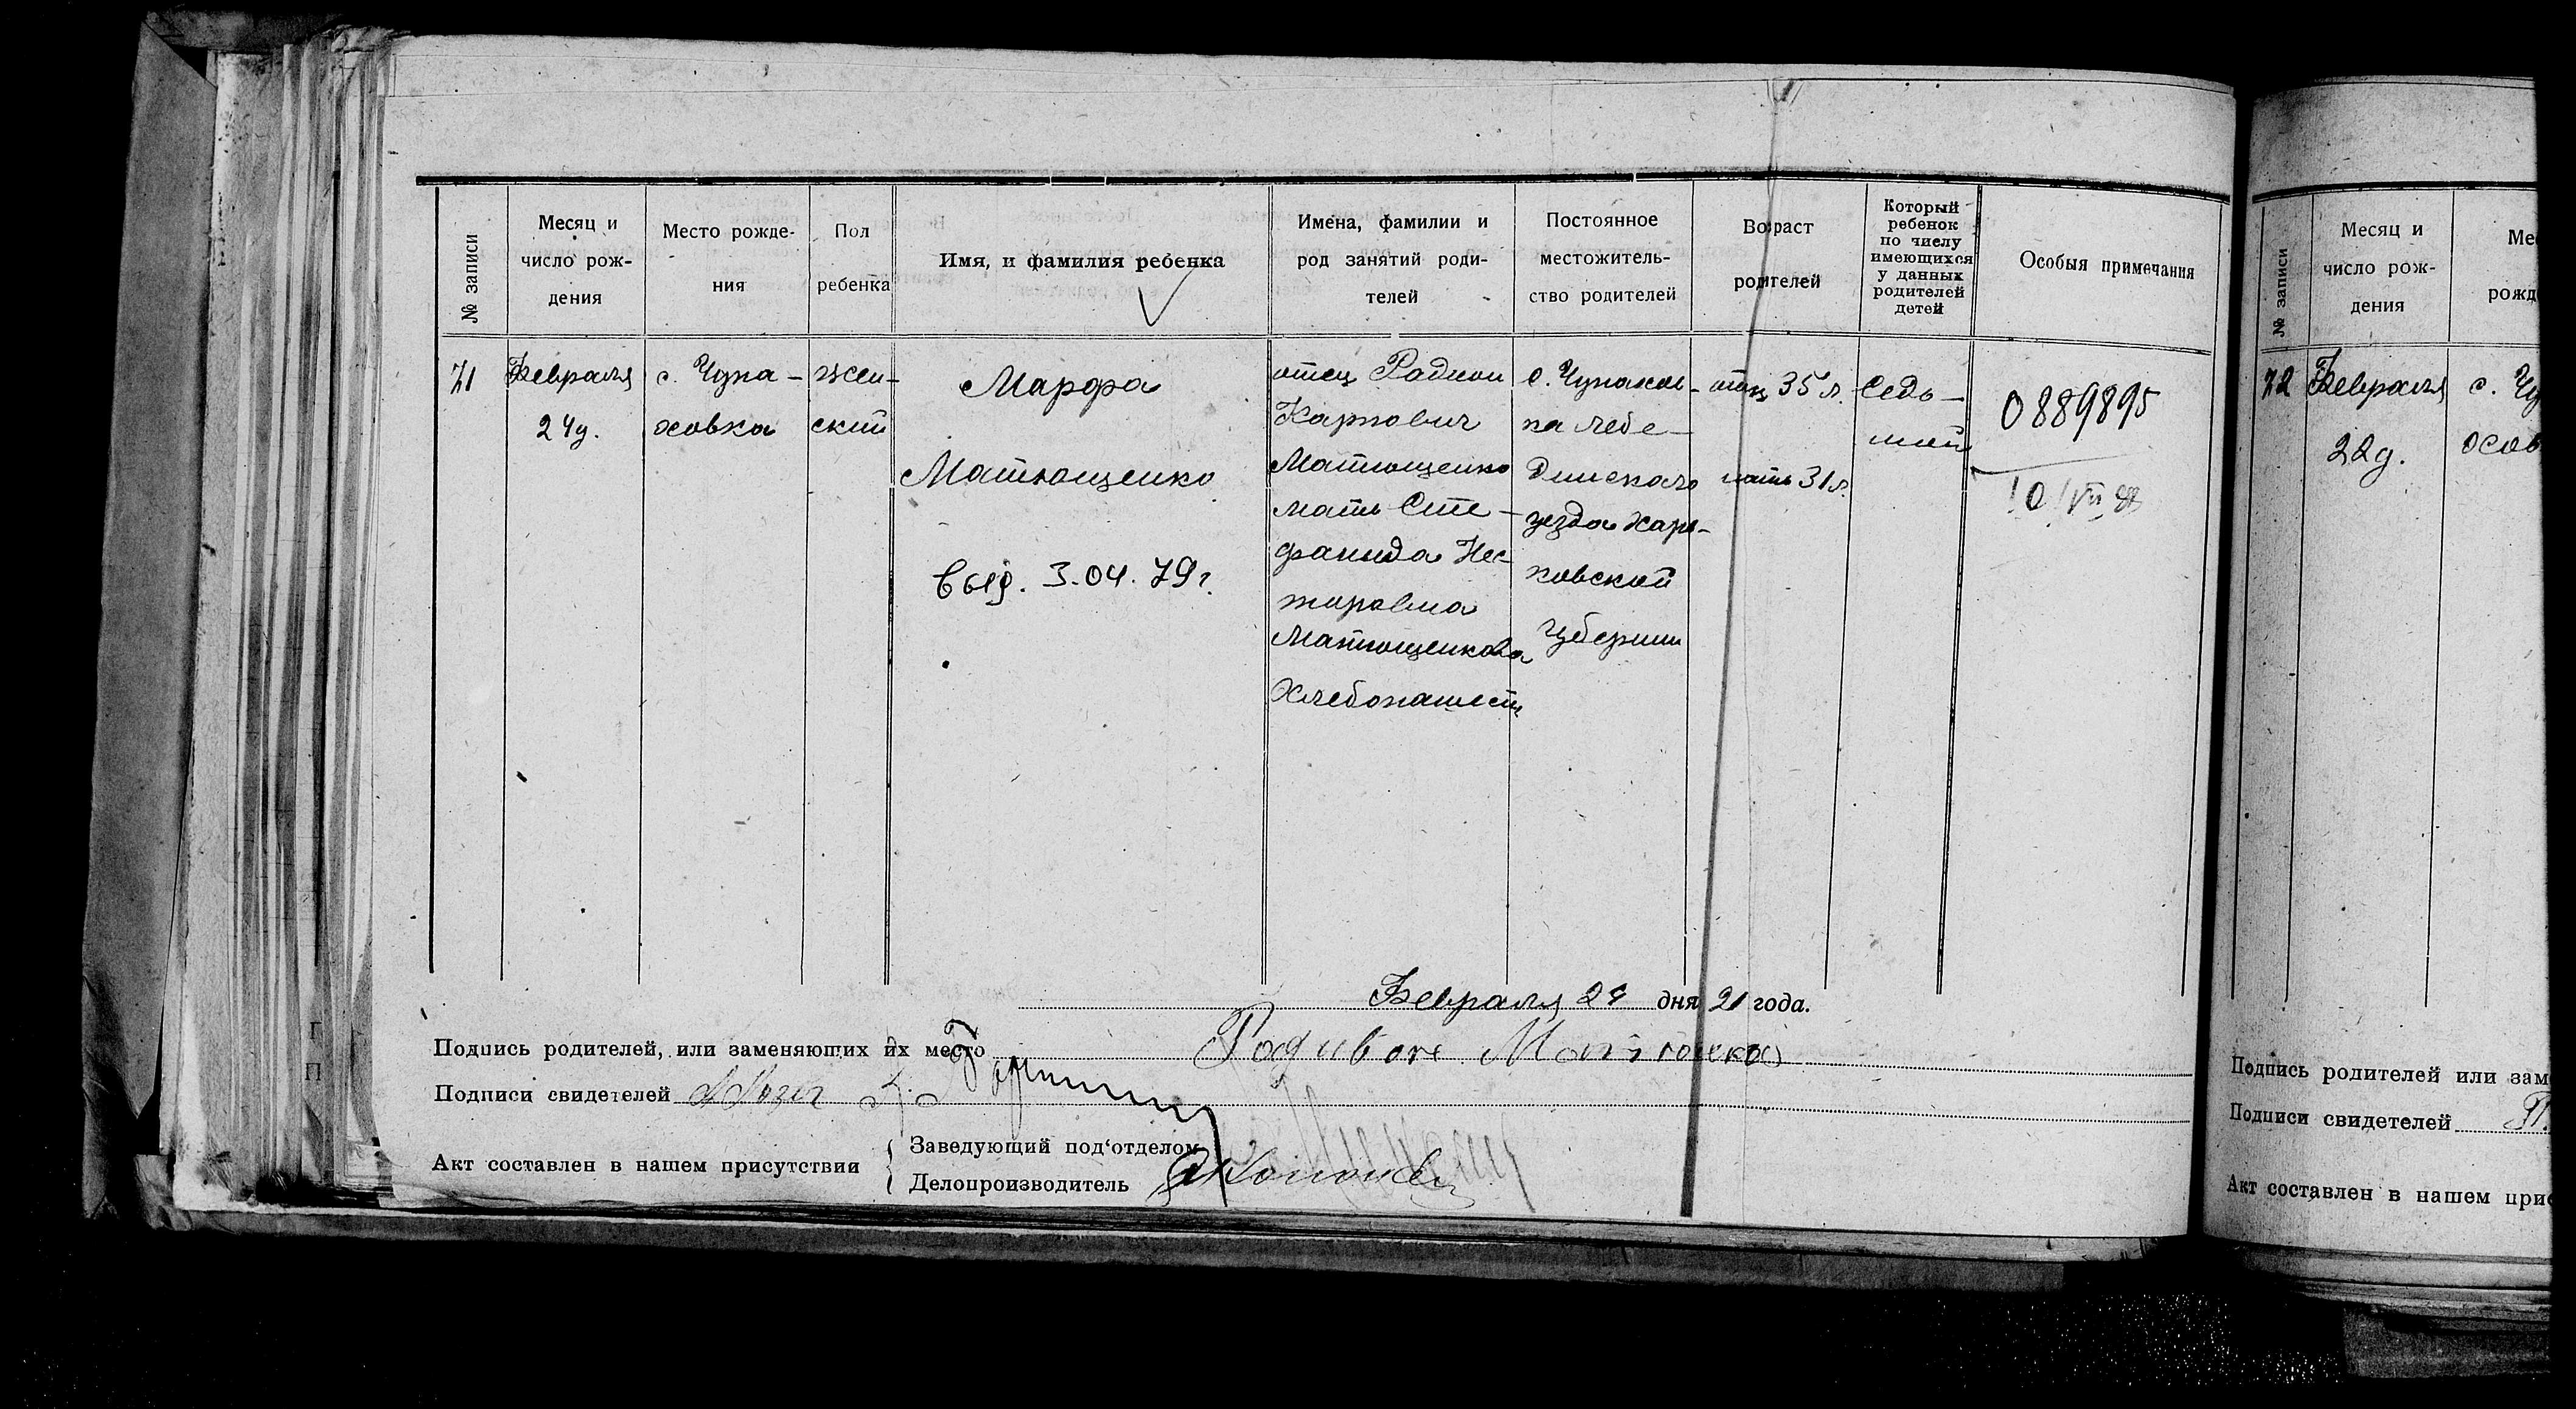 № записи
Месяц и
число рож-
дения
Место рожде-
ния
Пол
ребенка
Имя, и фамилия ребенка
Имена, фамилии и
род занятий роди-
телей
Постоянное
местожитель-
ство родителей
Возраст
родителей
Который
ребенок
по числу
имеющихся
у данных
родителей
детей
Особыя примечания
71
Февраля
24д.
с. Чупа-
ховка
жен-
ский
Марфа
Матющенко
выд. 3.04.79г.
отец Радион
Карпович
Матющенко
мать Сте-
фанида Нес-
Матющенкова
Хлебопашест
с. Чупахов-
ка Лебе-
динскаго
уезда Харь-
ковской
Губернии
отец 35 л.
мать 31 л.
Седь-
мой
0889895
Февраля 24 дня 21 года.
Подпись родителей, или заменяющих их место
Подписи свидетелей
Акт составлен в нашем присутствии
Заведующий под‘отделом
Делопроизводитель
№ записи
Месяц и
число рож-
дения
Ме
рожд
72
Февраля
22д.
с. Чу
Подпись родителей или зам
Подписи свидетелей
Акт составлен в нашем прис